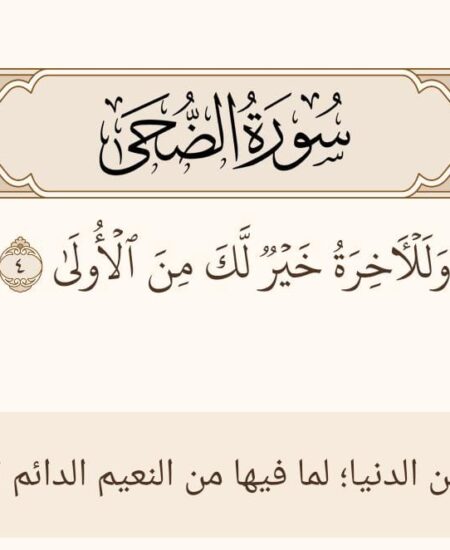 سُورَةُ الضُّحَى
وَلَلْأٓخِرَةُ خَيْرٌ لَّكَ مِنَ ٱلْأُولَىٰ ٤
الدنيا؛ لما فيها من النعيم الدائم